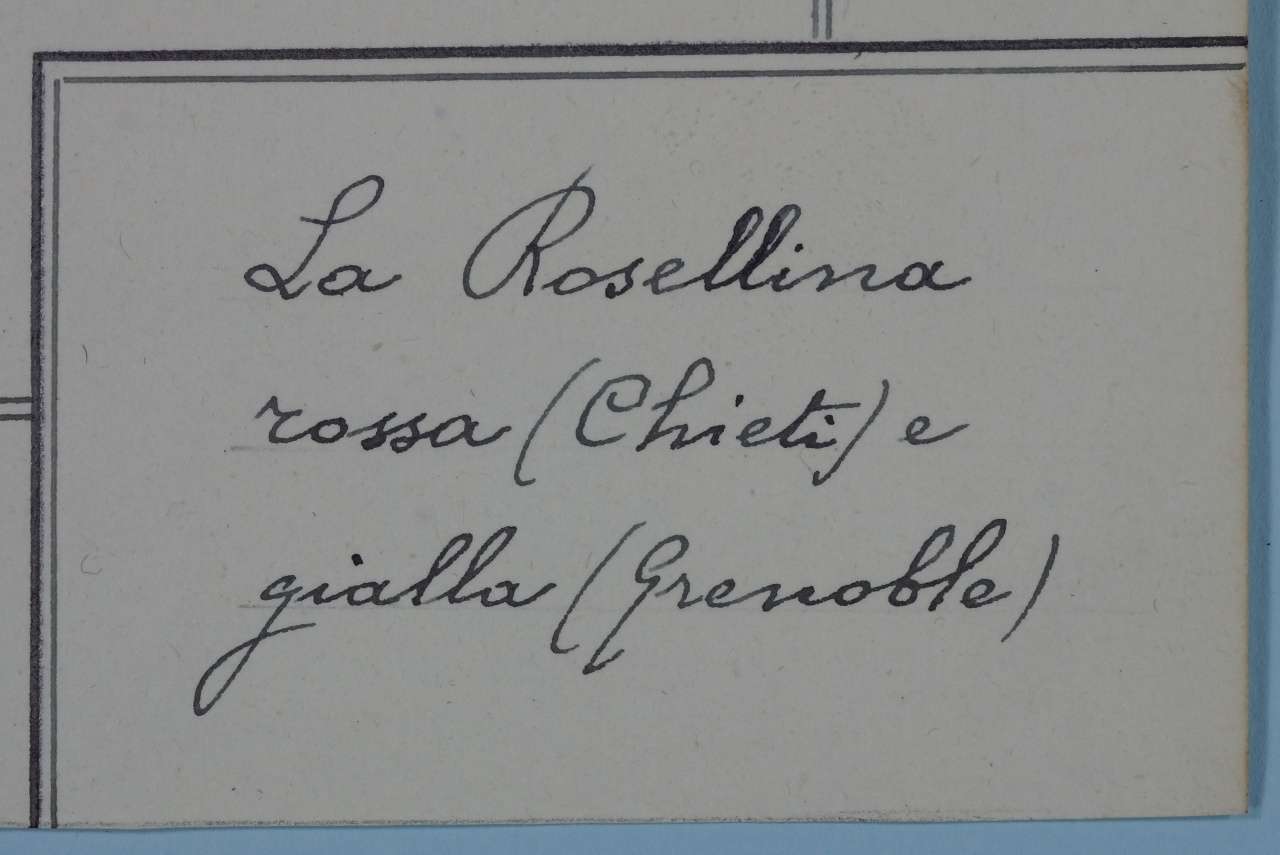 La Rosellina
rossa (Chieti) e
gialla (Grenoble)